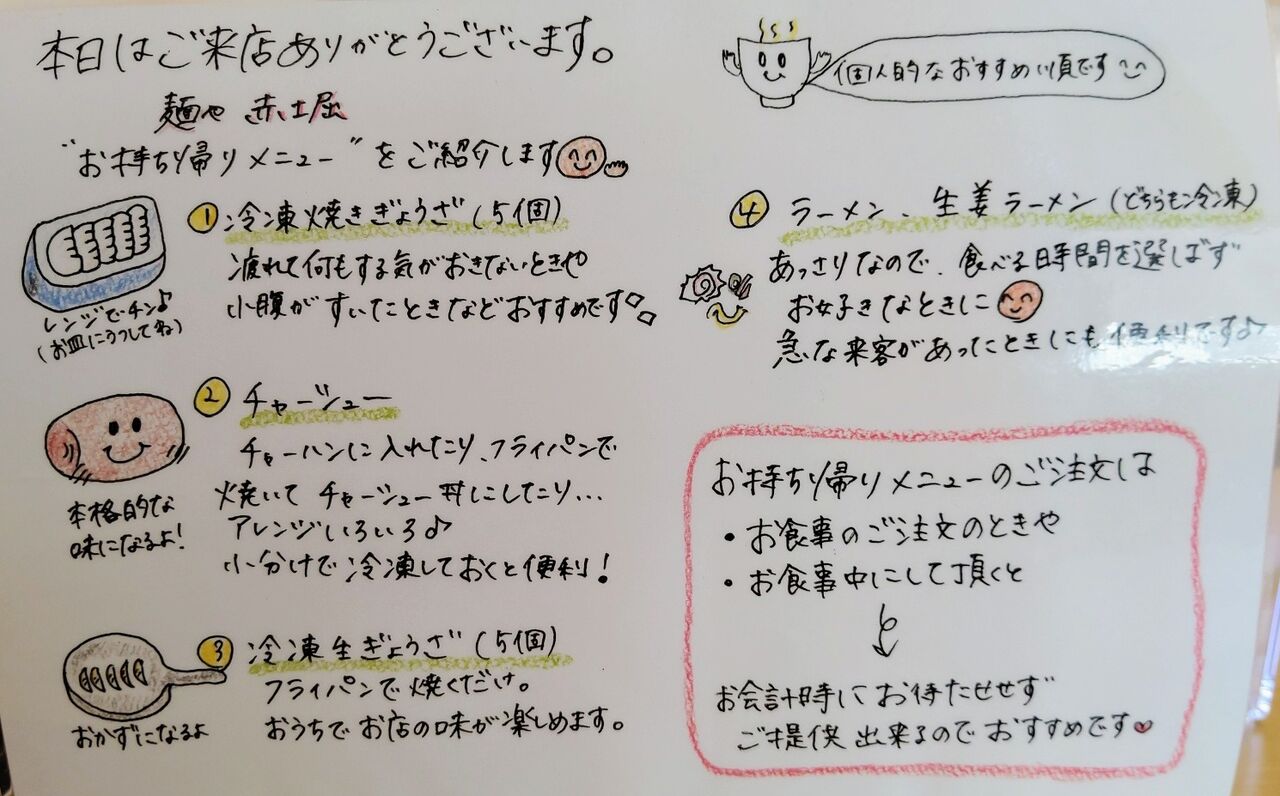 本日はご来店ありがとうございます。
麺や 赤土屈
"お持ち帰りメニュー"をご紹介します
① 冷凍焼きぎょうざ(5個)
疲れて何もする気がおきないときや
小腹がすいたときなどおすすめです
レンジでチン♪
(お皿にうつしてね)
② チャーシュー
チャーハンに入れたり、フライパンで
焼いてチャーシュー丼にしたり…
アレンジいろいろ♪
小分けで冷凍しておくと便利!
本格的な
味になるよ!
③ 冷凍生ぎょうざ(5個)
フライパンで焼くだけ。
おうちでお店の味が楽しめます。
おかずになるよ
個人的なおすすめ順です
④ ラーメン、生姜ラーメン(どちらも冷凍)
あっさりなので、食べる時間を選ばず
お好きなときに
急な来客があったときにも便利です♪
お持ち帰りメニューのご注文は
・お食事のご注文のときや
・お食事中にして頂くと
お会計時にお待たせせず
ご提供出来るのでおすすめです♥